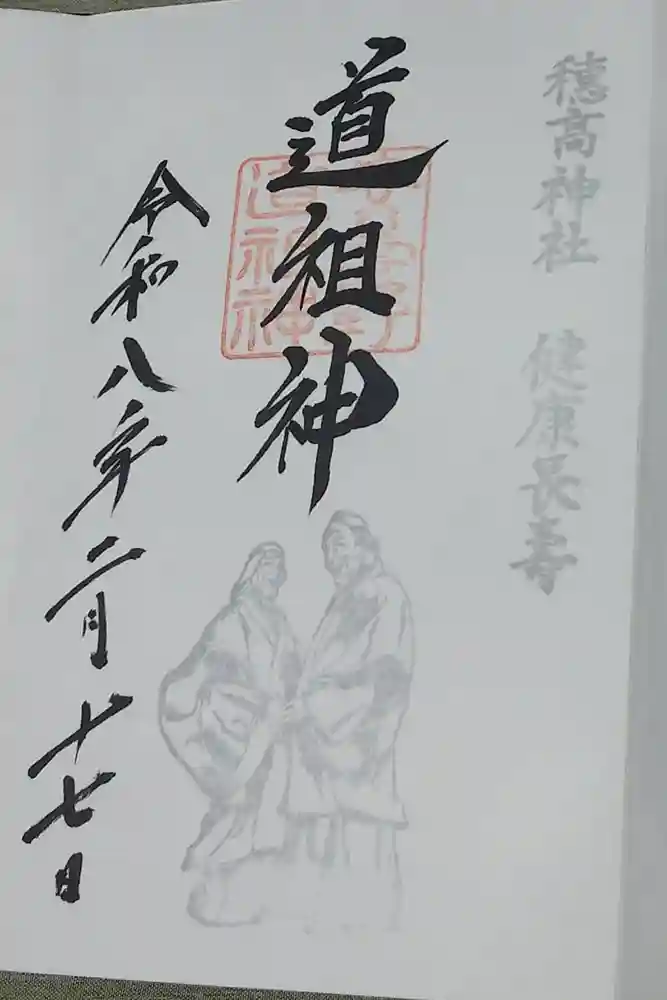 穂高神社 健康長壽
道祖神
安曇野
道祖神
令和八年二月十七日